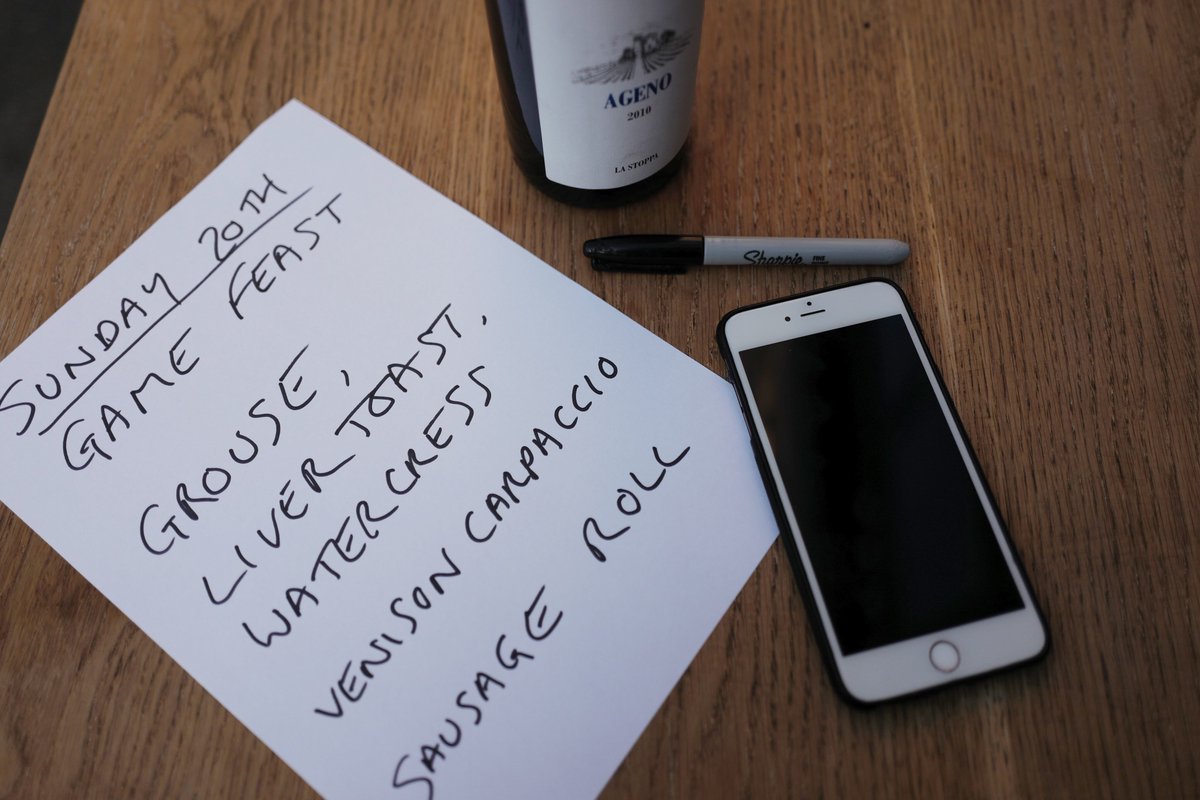 AGENO
2010
LA STOPPA
Sharpie FINE
SUNDAY 20TH
GAME FEAST
GROUSE,
LIVER TOAST,
WATERCRESS
VENISON CARPACCIO
SAUSAGE ROLL